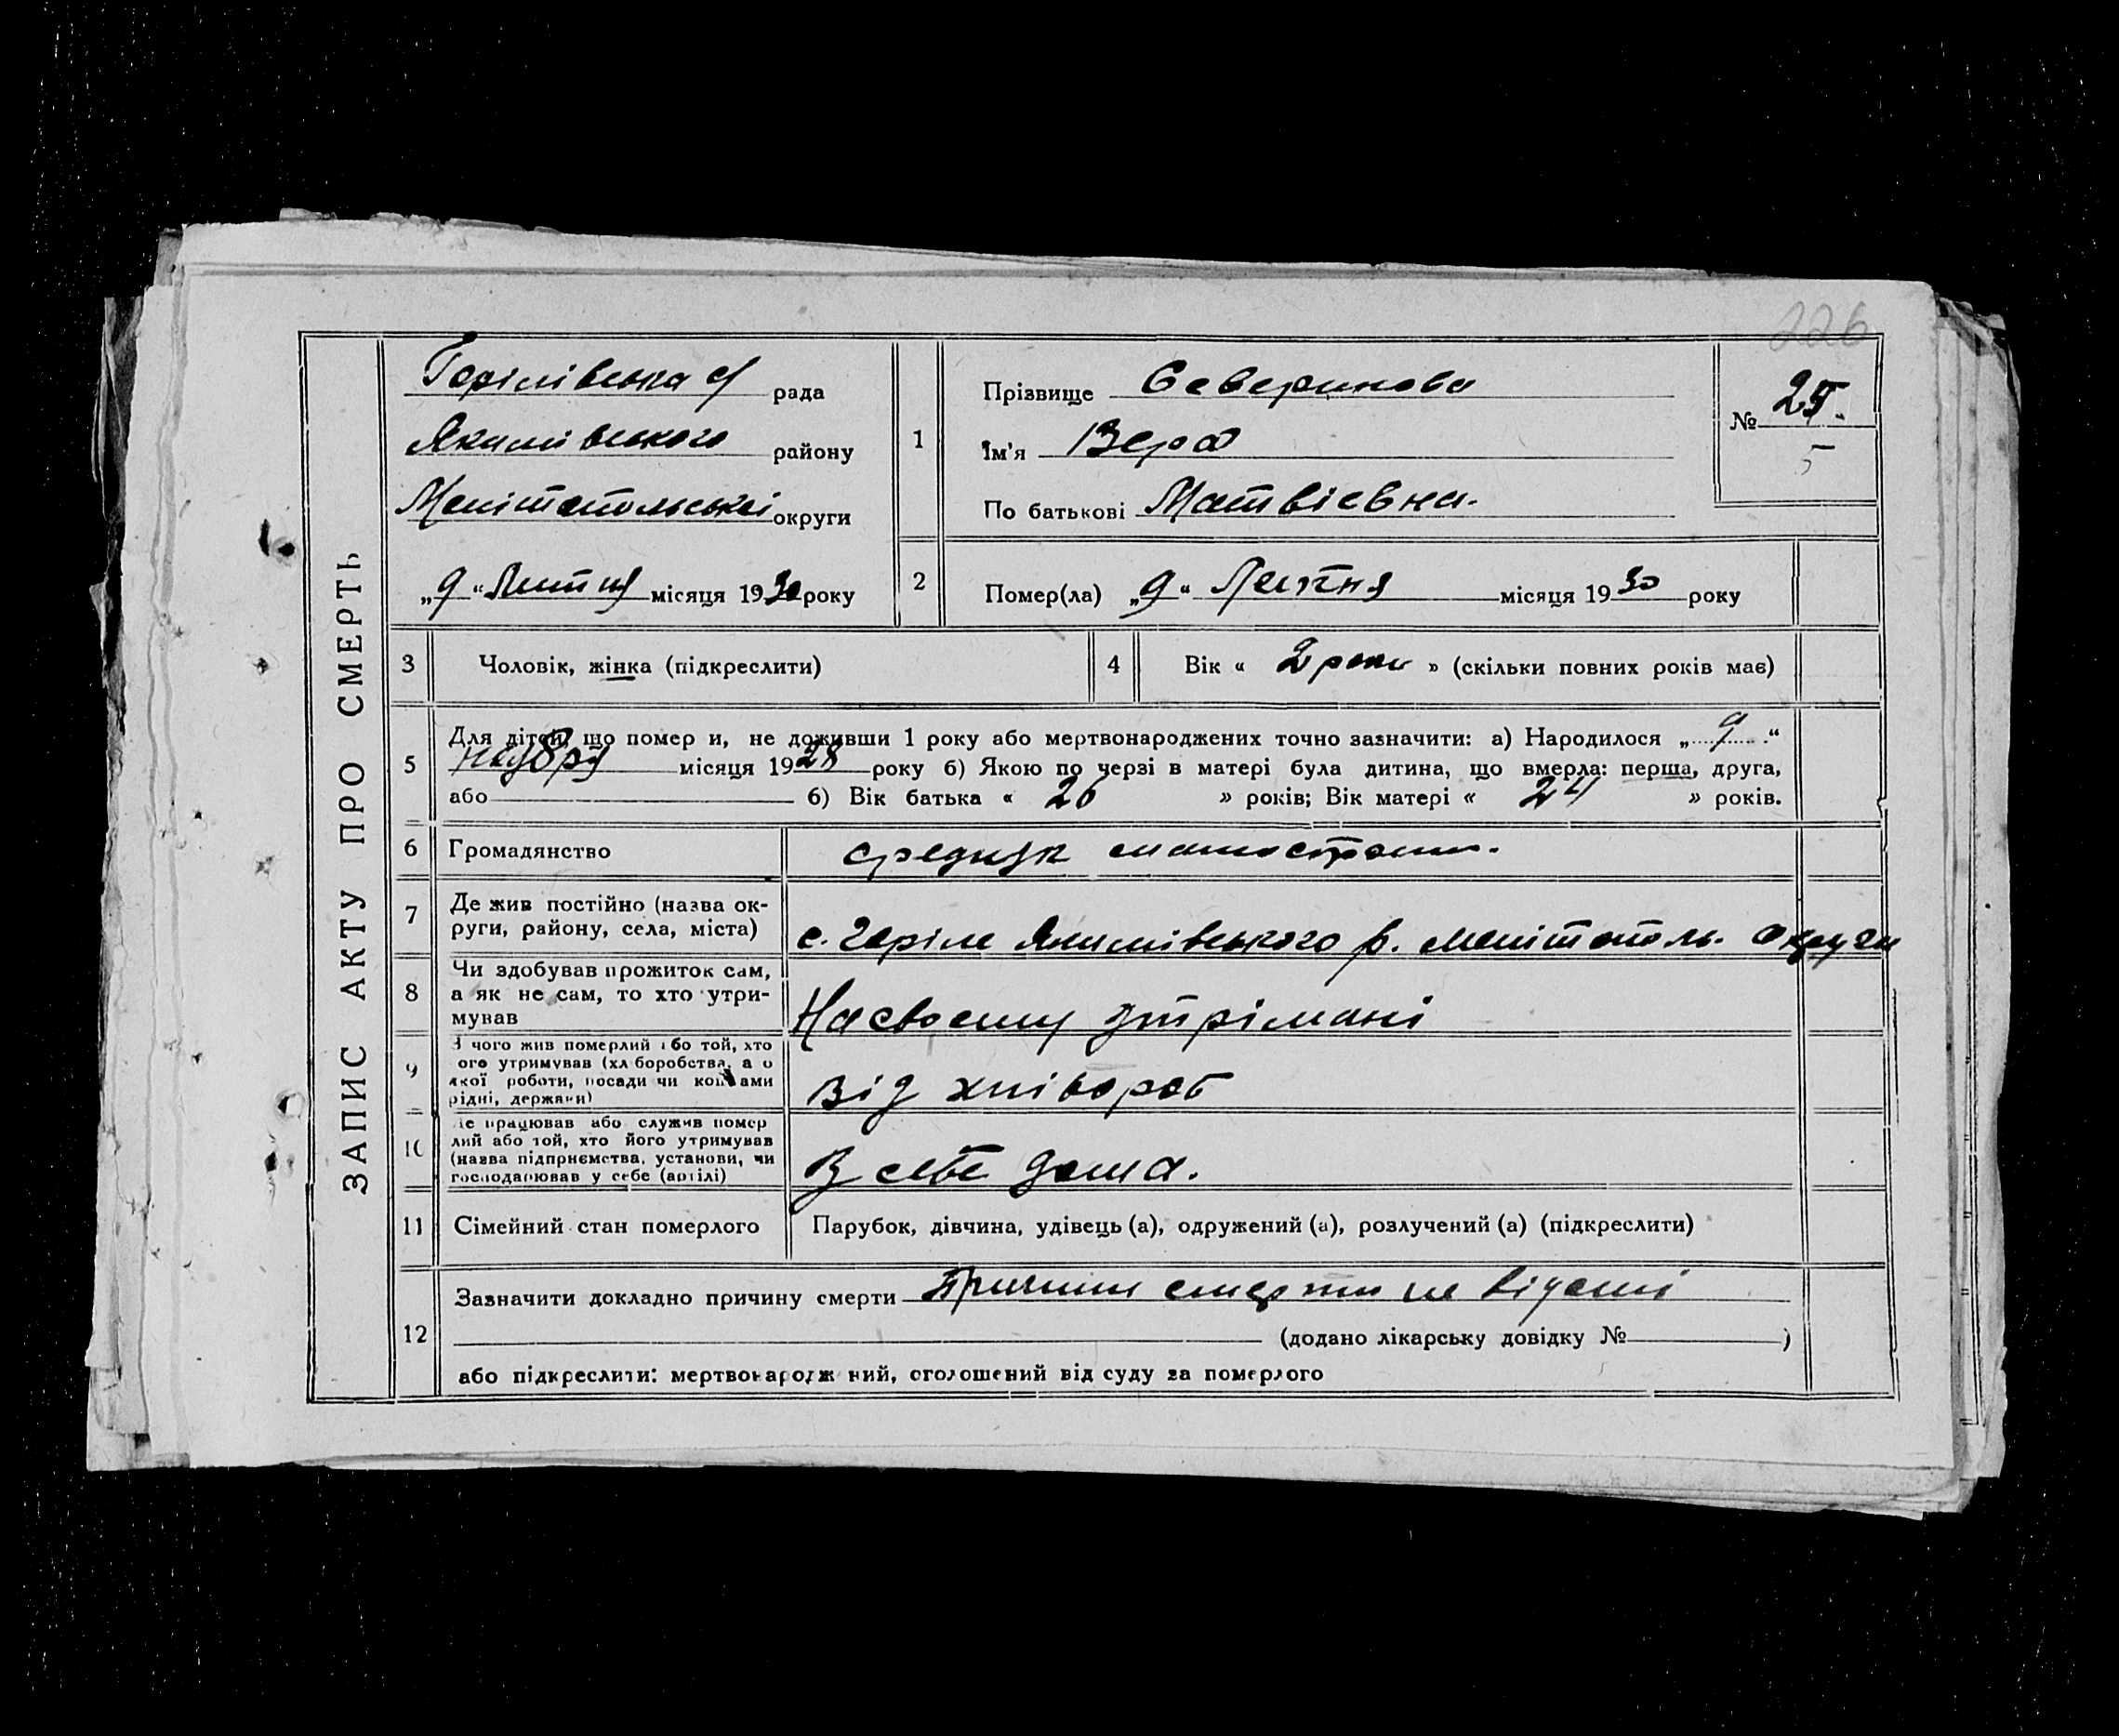 226
ЗАПИС АКТУ ПРО СМЕРТЬ
Горілівська с/ рада
Якимівського району
Мелітопольської округи
„9“ Лютня місяця 1930 року
1
Прізвище Северинова
Ім'я Вера
По батькові Матвієвна.
№ 25.
5
2
Помер(ла) „9“ Лютня місяця 1930 року
3 Чоловік, жінка (підкреслити)
4 Вік « 2 роки » (скільки повних років має)
5
Для дітей, що помер и, не доживши 1 року або мертвонароджених точно зазначити: а) Народилося „9“
ноября місяця 1928 року б) Якою по черзі в матері була дитина, що вмерла: перша, друга,
або б) Вік батька « 26 » років; Вік матері « 24 » років.
6 Громадянство средняк
7 Де жив постійно (назва ок-
руги, району, села, міста) с. Горіле Якимівського р. Мелітополь. округи
8
Чи здобував прожиток сам,
а як не сам, то хто утри-
мував
На своему утрімані
9
З чого жив померлий або той, хто
ого утримував (хл боробства, а о
якої роботи, посади чи коштами
рідні, держави)
Від хлібороб
10
Де працював або служив помер
лий або той, хто його утримував
(назва підприємства, установи, чи
господарював у себе (артілі)
В себе дома.
11 Сімейний стан померлого Парубок, дівчина, удівець (а), одружений (а), розлучений (а) (підкреслити)
12
Зазначити докладно причину смерти Причини смерти не відомі
(додано лікарську довідку № )
або підкреслити: мертвонародж ний, оголошений від суду за померлого